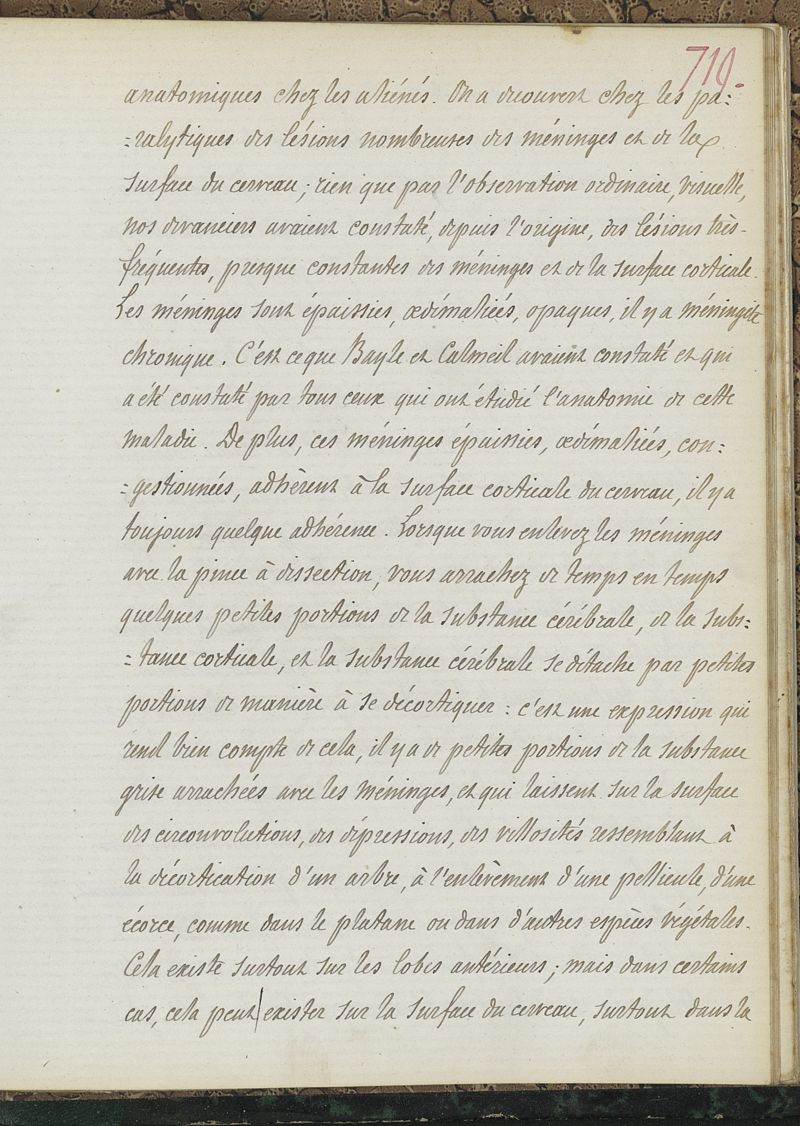 719.
anatomiques chez les aliénés. On a découvert chez les pa=
=ralytiques des lésions nombreuses des méninges et de la
surface du cerveau; rien que par l'observation ordinaire, visuelle,
nos devanciers avaient constaté, depuis l'origine, des lésions très-
fréquentes, presque constantes des méninges et de la surface corticale.
Les méninges sont épaissies, œdématiées, opaques, il y a méningite
chronique. C'est ce que Bayle et Calmeil avaient constaté et qui
a été constaté par tous ceux qui ont étudié l'anatomie de cette
maladie. De plus, ces méninges épaissies, œdématiées, con=
=gestionnées, adhèrent à la surface corticale du cerveau, il y a
toujours quelque adhérence. Lorsque vous enlevez les méninges
avec la pince à dissection, vous arrachez de temps en temps
quelques petites portions de la substance cérébrale, de la subs=
=tance corticale, et la substance cérébrale se détache par petites
portions de manière à se décortiquer: c'est une expression qui
rend bien compte de cela, il y a de petites portions de la substance
grise arrachées avec les méninges, et qui laissent sur la surface
des circonvolutions, des dépressions, des villosités ressemblant à
la décortication d'un arbre, à l'enlèvement d'une pellicule, d'une
écorce, comme dans le platane ou dans d'autres espèces végétales.
Cela existe surtout sur les lobes antérieurs; mais dans certains
cas, cela peut exister sur la surface du cerveau, surtout dans la